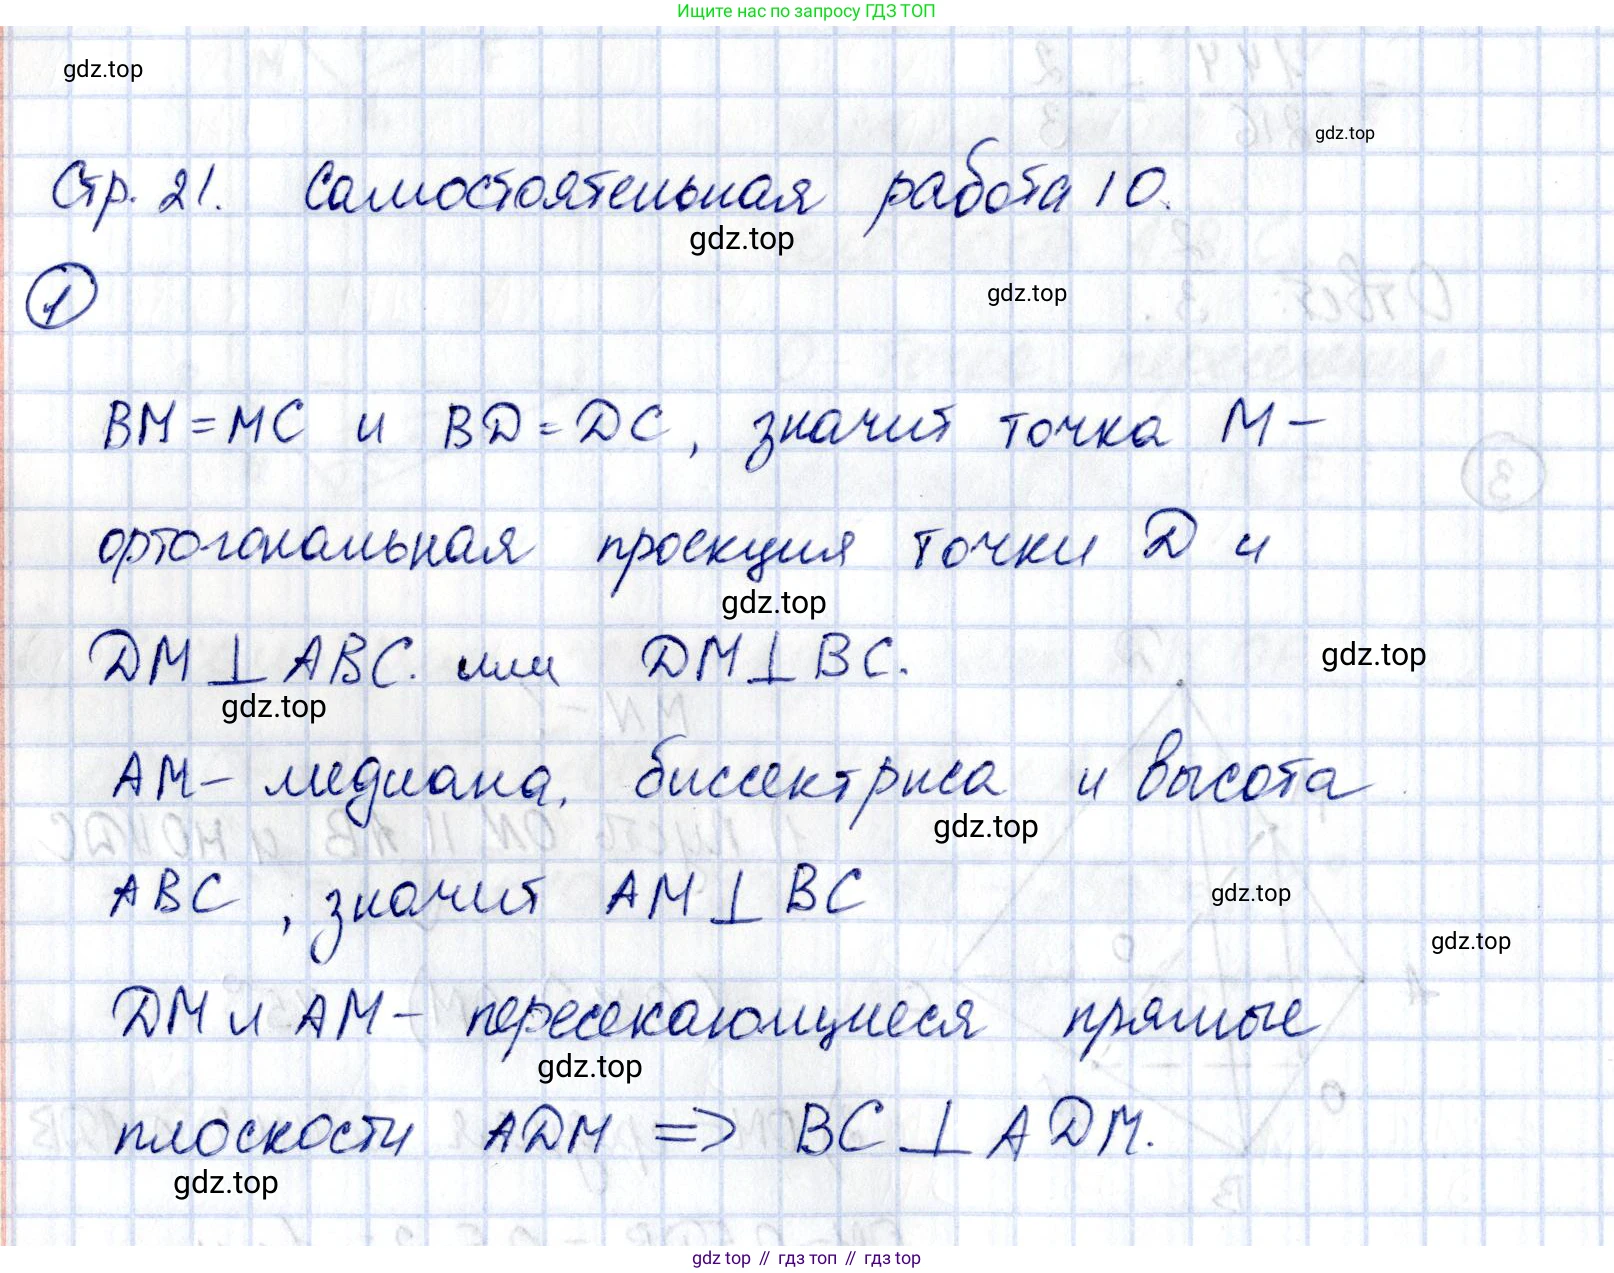 Ищите нас по запросу ГДЗ ТОП
gdz.top
gdz.top
Стр. 21. Самостоятельная работа 10.
gdz.top
1
gdz.top
BM = MC и BD = DC, значит точка M –
ортогональная проекция точки D и
gdz.top
DM ⊥ ABC. или DM ⊥ BC.
gdz.top
gdz.top
AM – медиана, биссектриса и высота
gdz.top
ABC, значит AM ⊥ BC
gdz.top
gdz.top
DM и AM – пересекающиеся прямые
gdz.top
плоскости ADM => BC ⊥ ADM.
gdz.top
gdz top // гдз топ // гдз top